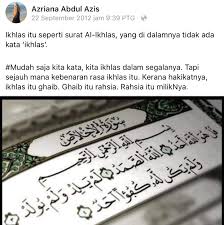 Azriana Abdul Azis
22 September 2012 jam 9:39 PTG ·
Ikhlas itu seperti surat Al-Ikhlas, yang di dalamnya tidak ada
kata 'ikhlas'.
#Mudah saja kita kata, kita ikhlas dalam segalanya. Tapi
sejauh mana kebenaran rasa ikhlas itu. Kerana hakikatnya,
ikhlas itu ghaib. Ghaib itu rahsia. Rahsia itu milikNya.
سورة الإخلاص
بسم الله الرحمن الرحيم
قل هو الله أحد الله الصمد لم يلد ولم يولد
ولم يكن له كفوا أحد